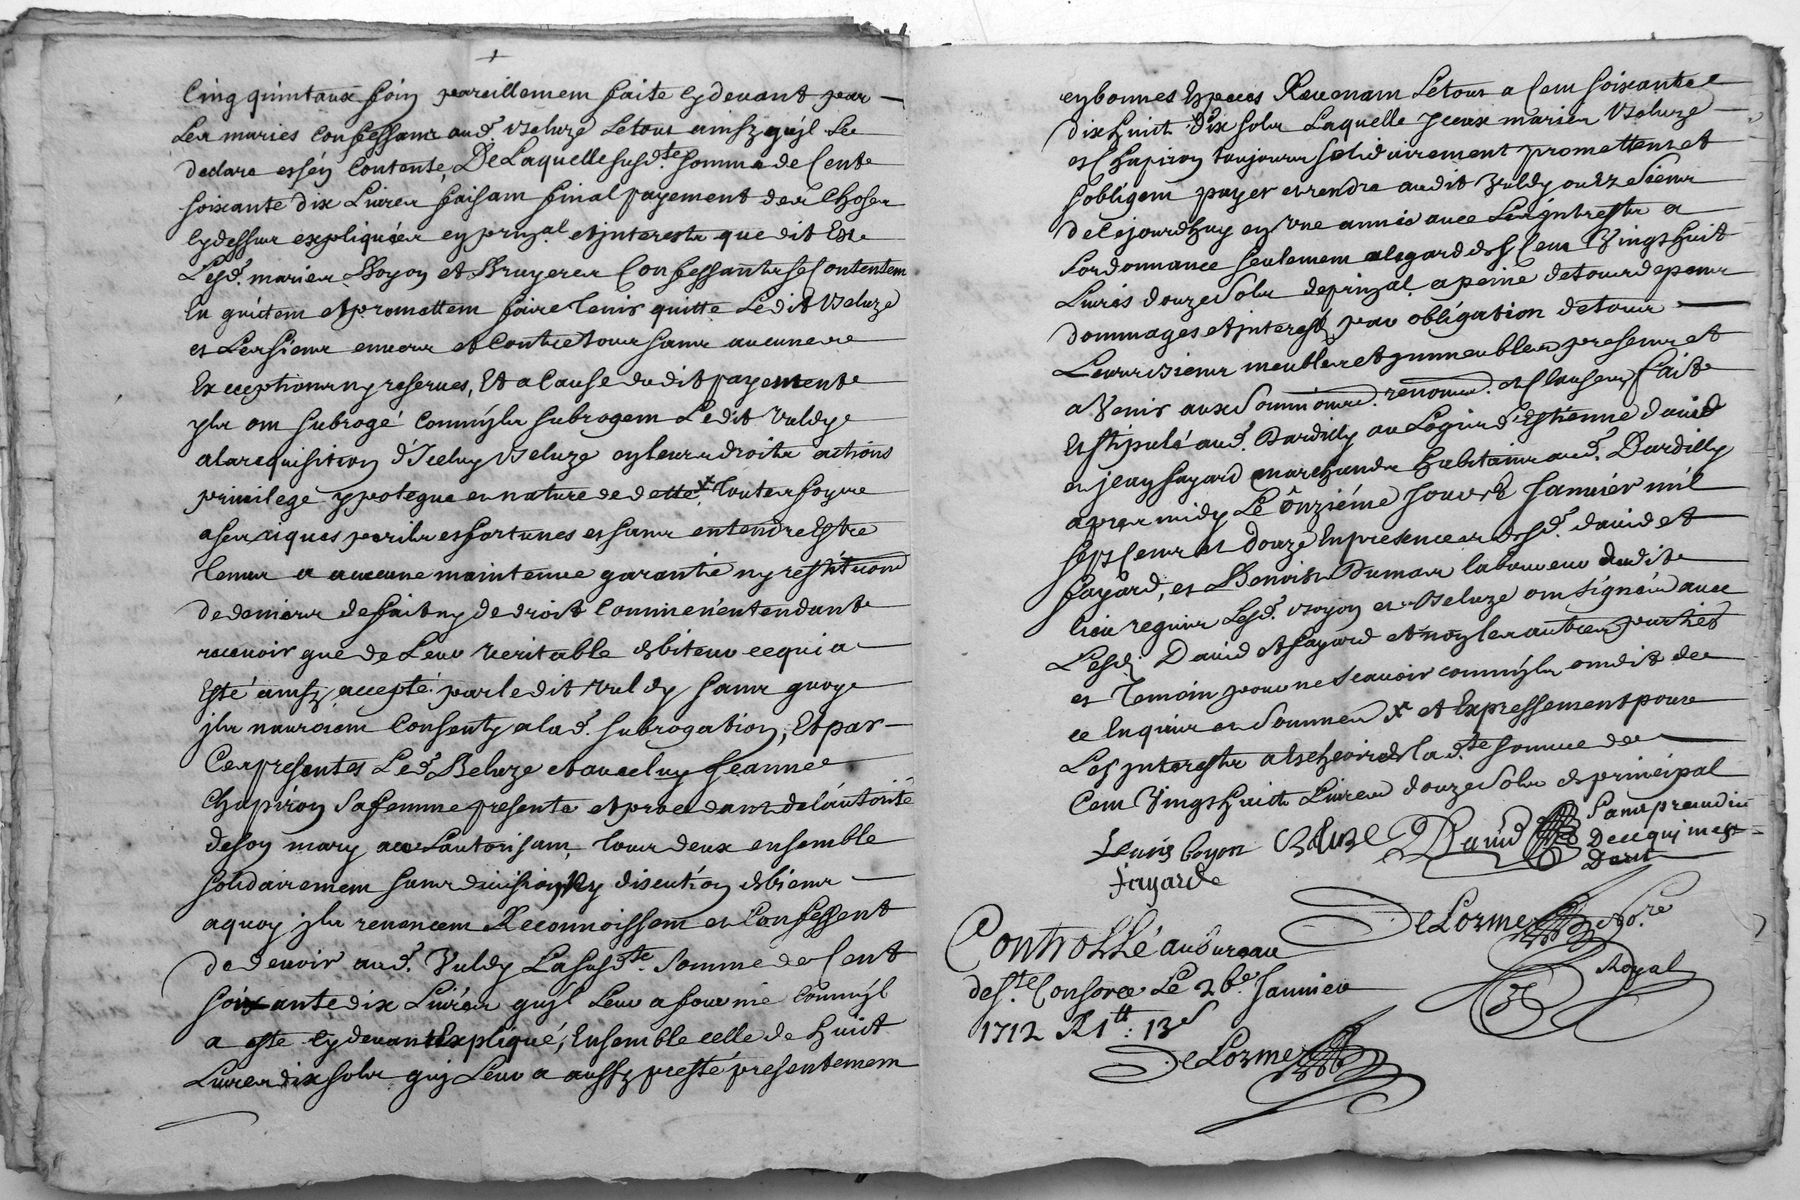 Cinq quintaux foin pareillement faite cy devant par
les maries confessans aud. Beluze le tout ainsy qu'jl le
declare et s'en contente, De Laquelle susd.te somme de Cent
soixante dix Livres faisant final payement des choses
cy dessus expliquées en prin.al et jnterests que dit Est
Lesd. maries Boyon et Bruyeres Confessants se Contentent
En quictent et promettent faire tenir quitte Ledit Beluze
et Les siens envers et Contre tous sans aucunes
Exceptions ny reserves, Et a Cause dudit payement
jls ont subrogé comm'jls subrogent Ledit Vuldy
a la requisition d'Jceluy Beluze en leurs droits actions
privilege ypoteque et nature de dette x toutes foys
a ses risques perils et fortunes et sans entendre Estre
tenus a aucune maintenue garantie ny restitution
de deniers de fait ny de droit Comme n'entendants
recevoir que de Leur veritable debiteur ce qui a
Esté ainsy accepté par ledit Vuldy sans quoy
jls n'auroient Consenty a lad. subrogation, Et par
Ces presentes Led. Beluze et avec luy Jeanne
Chapiron sa femme presente et procedant de l'autorité
de son mary a ce L'autorisant, tous deux ensemble
solidairement sans division Ny discution de biens
a quoy jls renoncent Reconnoissent et Confessent
de devoir aud. Vuldy La susd.te somme de Cent
soixante dix Livres qu'jl Leur a fournie comm'jl
a esté cy devant Expliqué, Ensemble celle de huit
Livres dix sols qu'j Leur a aussy presté presentement
en bonnes Especes Revenant Le tout a Cent soixante
dix huit Livres dix sols Laquelle Jceux maries Beluze
et Chapiron toujours solidairement promettent et
s'obligent payer et rendre audit Vuldy ou Ez siens
de Cejourdhuy en Une année avec Les jnterests a
L'ordonnance seulement a legard des Cent Vingt huit
Livres douze sols de prin.al a peine de tous depens
dommages et jnterests par obligation de tous
Leurs biens meubles et jmmeubles presents et
a Venir aux soumissions. renonc. et Clauses, fait
Et stipulé aud. Dardilly au Logis d'Estienne david
et jean fayard marchands habitants aud. Dardilly
apres midy Le Onziéme Jour de Janvier mil
sept Cents et douze En presences desd. david et
fayard, et Benoist Dumas laboureur dudit
lieu requis Lesd. Boyon et Beluze ont signé avec
Lesd. David et fayard et non les autres parties
et temoin pour ne scavoir comm'jls ont dit de
ce Enquis et sommes x et Expressement pour
Les jnterests a Escheoir de lad.te somme de
Cent Vingt huit Livres douze sols de principal
Sans prejudice
De ce qui m'est
Deut
Lenis boyon Beluze David
fayard
DeLorme No.re
Royal
Controllé au bureau
de S.te Consorce Le 26e Janvier
1712 R 1tt: 13s
DeLorme